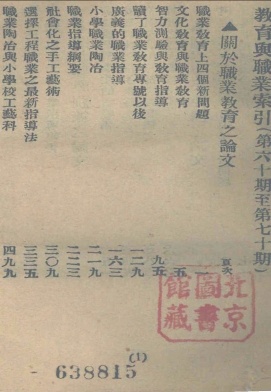 教育與職業索引(第六十期至第七十期)
▲關於職業教育之論文
頁次
職業教育上四個新問題 一
文化教育與職業教育 五
智力測驗與教育指導 九五
讀了職業教育專號以後 一二九
廣義的職業指導 一六三
小學職業陶冶 二一九
職業指導綱要 二二三
社會化之手工藝術 三〇九
選擇工程職業之最新指導法 三三五
職業陶冶與小學校工藝科 四九九
北京圖書館藏
(1)
638815